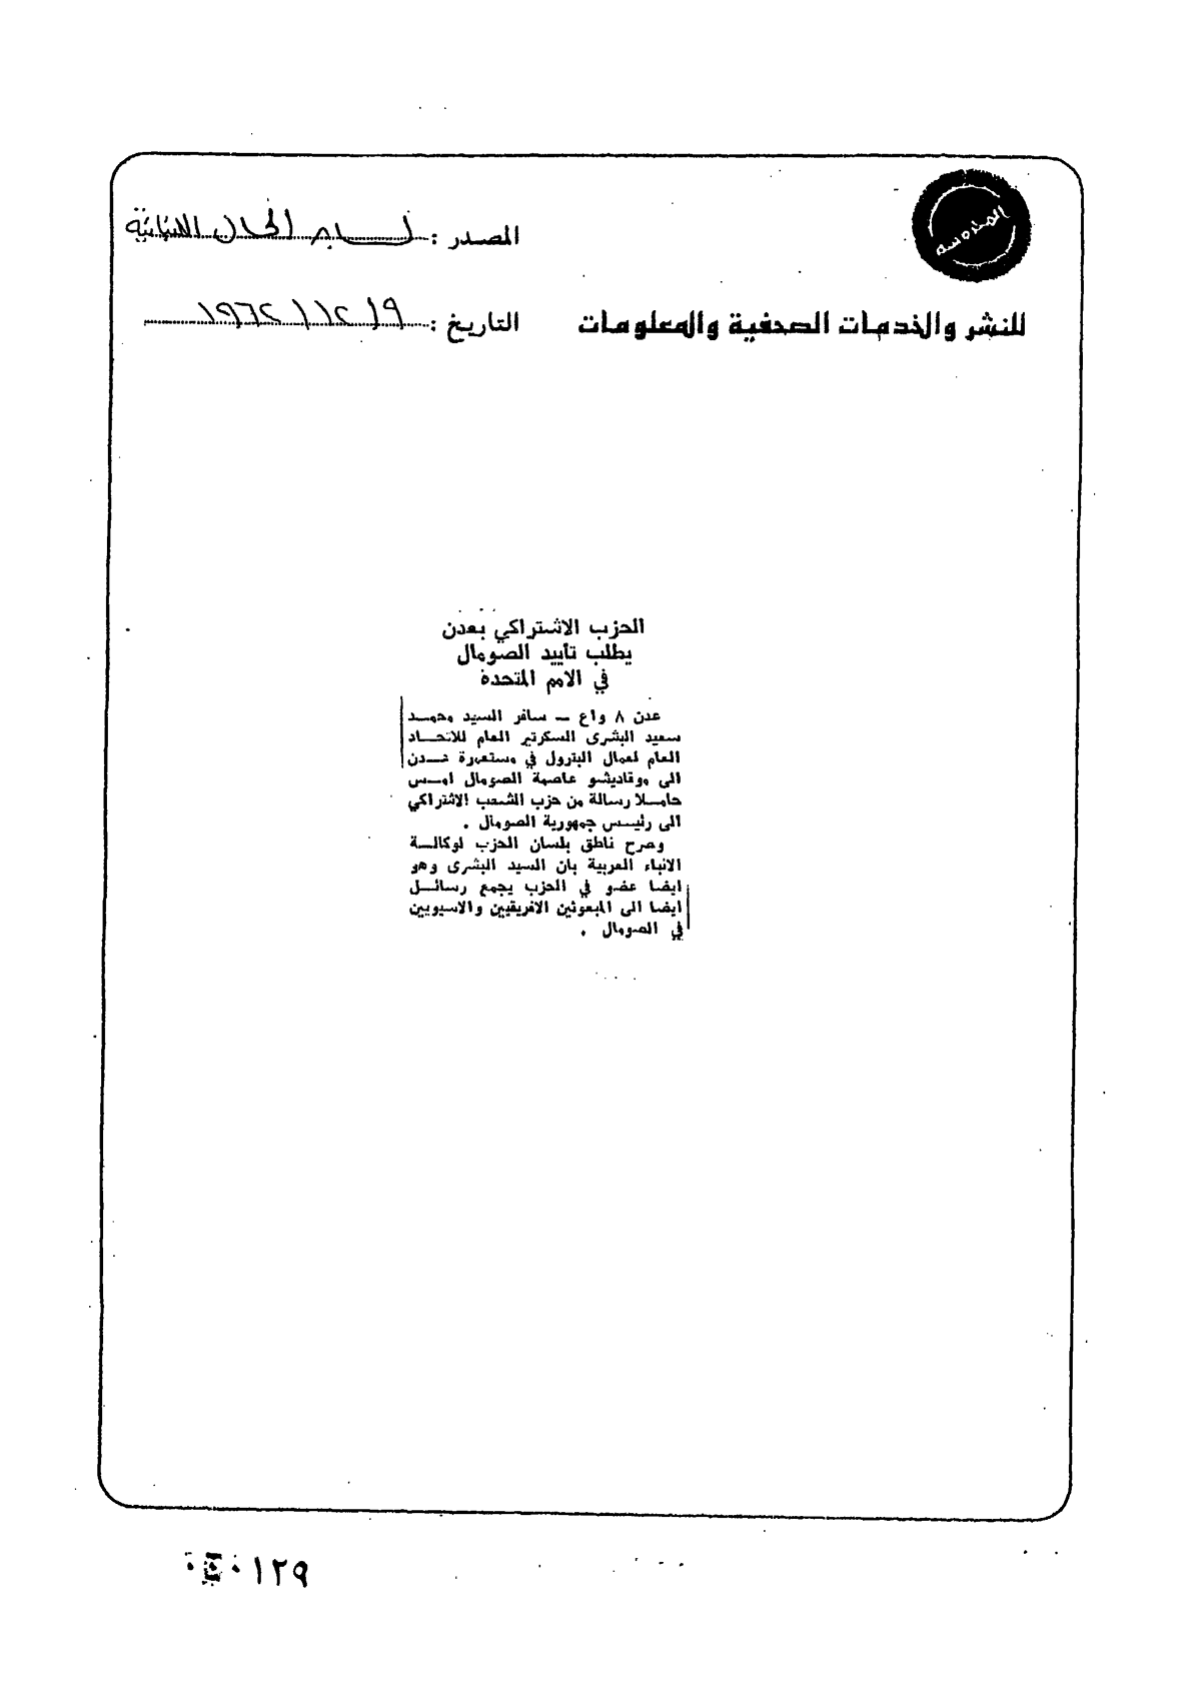 المصدر : لسان الحال اللبنانية
للنشر والخدمات الصحفية والمعلومات
التاريخ : ٩ / ١٢ / ١٩٦٢
الحزب الاشتراكي بعدن
يطلب تأييد الصومال
في الامم المتحدة
عدن ٨ واع ــ سافر السيد محمـد
سعيد البشرى السكرتير العام للاتحـاد
العام لعمال البترول في مستعمرة عـدن
الى موقاديشو عاصمة الصومال امـس
حامـلا رسالة من حزب الشعب الاشتراكي
الى رئيـس جمهورية الصومال .
وصرح ناطق بلسان الحزب لوكالـة
الانباء العربية بان السيد البشرى وهو
ايضا عضو في الحزب يجمع رسائـل
ايضا الى المبعوثين الافريقيين والاسيويين
في الصومال .
١٢٩